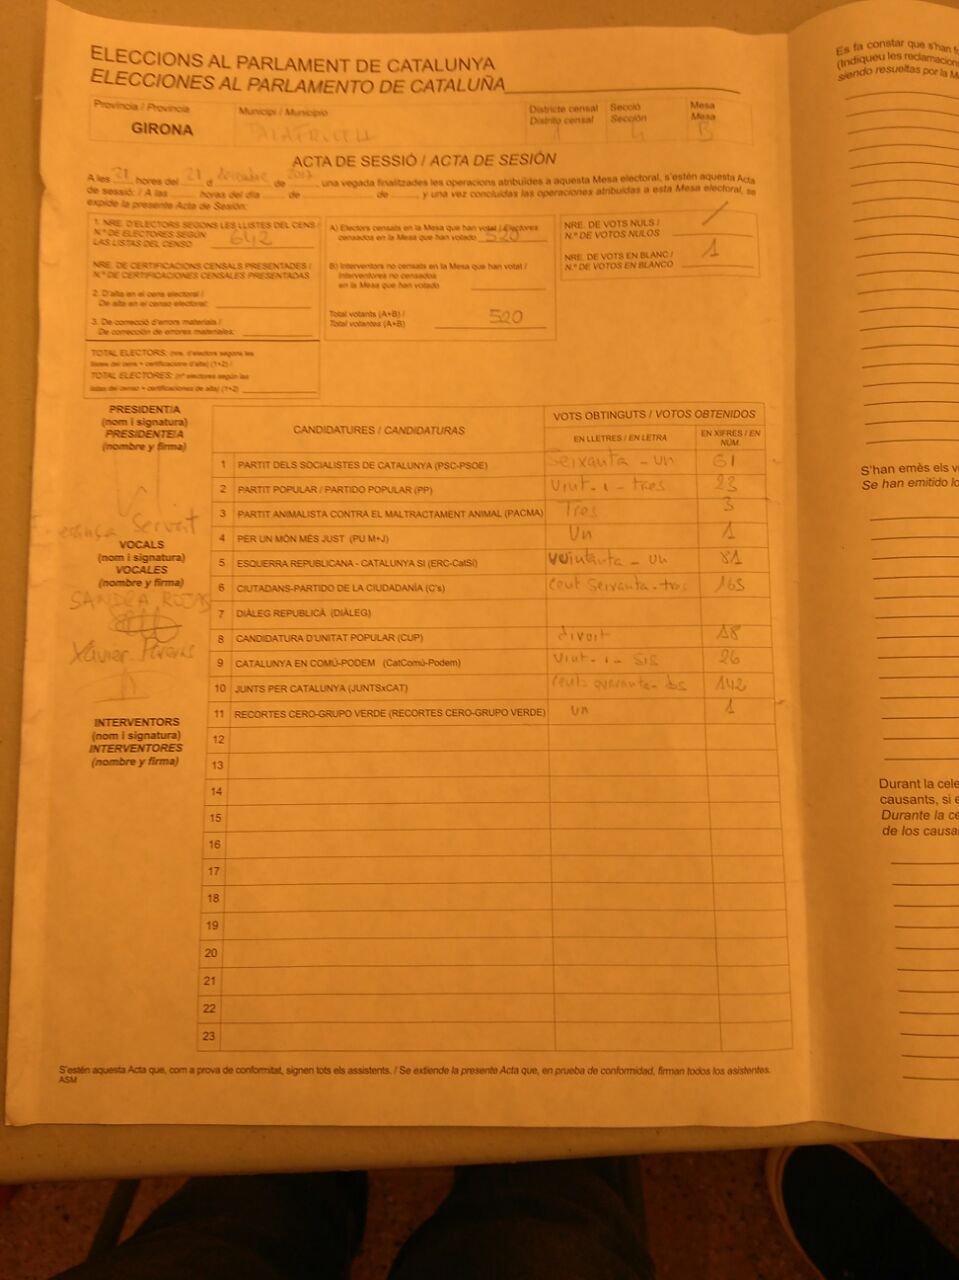 ELECCIONS AL PARLAMENT DE CATALUNYA
ELECCIONES AL PARLAMENTO DE CATALUÑA
Província / Provincia
Municipi / Municipio
Districte censal Secció Mesa
Distrito censal Sección Mesa
GIRONA PALAFRUGELL 1 4 B
ACTA DE SESSIÓ / ACTA DE SESIÓN
A les 21 hores del 21 d desembre de 2017, una vegada finalitzades les operacions atribuïdes a aquesta Mesa electoral, s'estén aquesta Acta
de sessió: / A las horas del día de de y una vez concluidas las operaciones atribuidas a esta Mesa electoral, se
expide la presente Acta de Sesión:
1. NRE. D'ELECTORS SEGONS LES LLISTES DEL CENS /
N.º DE ELECTORES SEGÚN
LAS LISTAS DEL CENSO 642
NRE. DE CERTIFICACIONS CENSALS PRESENTADES /
N.º DE CERTIFICACIONES CENSALES PRESENTADAS
2. D'alta en el cens electoral /
De alta en el censo electoral:
3. De correcció d'errors materials /
De corrección de errores materiales:
TOTAL ELECTORS: (nre. d'electors segons les
llistes del cens + certificacions d'alta) (1+2) /
TOTAL ELECTORES: (nº electores según las
listas del censo + certificaciones de alta) (1+2)
A) Electors censats en la Mesa que han votat / Electores
censados en la Mesa que han votado 520
B) Interventors no censats en la Mesa que han votat /
Interventores no censados
en la Mesa que han votado
Total votants (A+B) /
Total votantes (A+B) 520
NRE. DE VOTS NULS /
N.º DE VOTOS NULOS /
NRE. DE VOTS EN BLANC /
N.º DE VOTOS EN BLANCO 1
PRESIDENT/A
(nom i signatura)
PRESIDENTE/A
(nombre y firma)
VOCALS
(nom i signatura)
VOCALES
(nombre y firma)
SANDRA ROJAS
Xavier
INTERVENTORS
(nom i signatura)
INTERVENTORES
(nombre y firma)
CANDIDATURES / CANDIDATURAS
VOTS OBTINGUTS / VOTOS OBTENIDOS
EN LLETRES / EN LETRA
EN XIFRES / EN
NÚM.
1 PARTIT DELS SOCIALISTES DE CATALUNYA (PSC-PSOE) Seixanta - un 61
2 PARTIT POPULAR / PARTIDO POPULAR (PP) Vint-i-tres 23
3 PARTIT ANIMALISTA CONTRA EL MALTRACTAMENT ANIMAL (PACMA) Tres 3
4 PER UN MÓN MÉS JUST (PU M+J) Un 1
5 ESQUERRA REPUBLICANA - CATALUNYA SÍ (ERC-CatSí) vuintanta - un 81
6 CIUTADANS-PARTIDO DE LA CIUDADANÍA (C's) cent seixanta-tres 163
7 DIÀLEG REPUBLICÀ (DIÀLEG)
8 CANDIDATURA D'UNITAT POPULAR (CUP) divuit 18
9 CATALUNYA EN COMÚ-PODEM (CatComú-Podem) Vint-i-sis 26
10 JUNTS PER CATALUNYA (JUNTSxCAT) cent quaranta-dos 142
11 RECORTES CERO-GRUPO VERDE (RECORTES CERO-GRUPO VERDE) un 1
12
13
14
15
16
17
18
19
20
21
22
23
S'estén aquesta Acta que, com a prova de conformitat, signen tots els assistents. / Se extiende la presente Acta que, en prueba de conformidad, firman todos los asistentes.
ASM
Es fa constar que s'han
(Indiqueu les reclamacion
siendo resueltas por la M
S'han emès els v
Se han emitido lo
Durant la cele
causants, si e
Durante la ce
de los causa